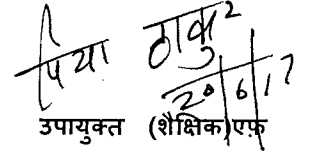 पिया ठाकुर
20/6/17
उपायुक्त (शैक्षिक)एफ़